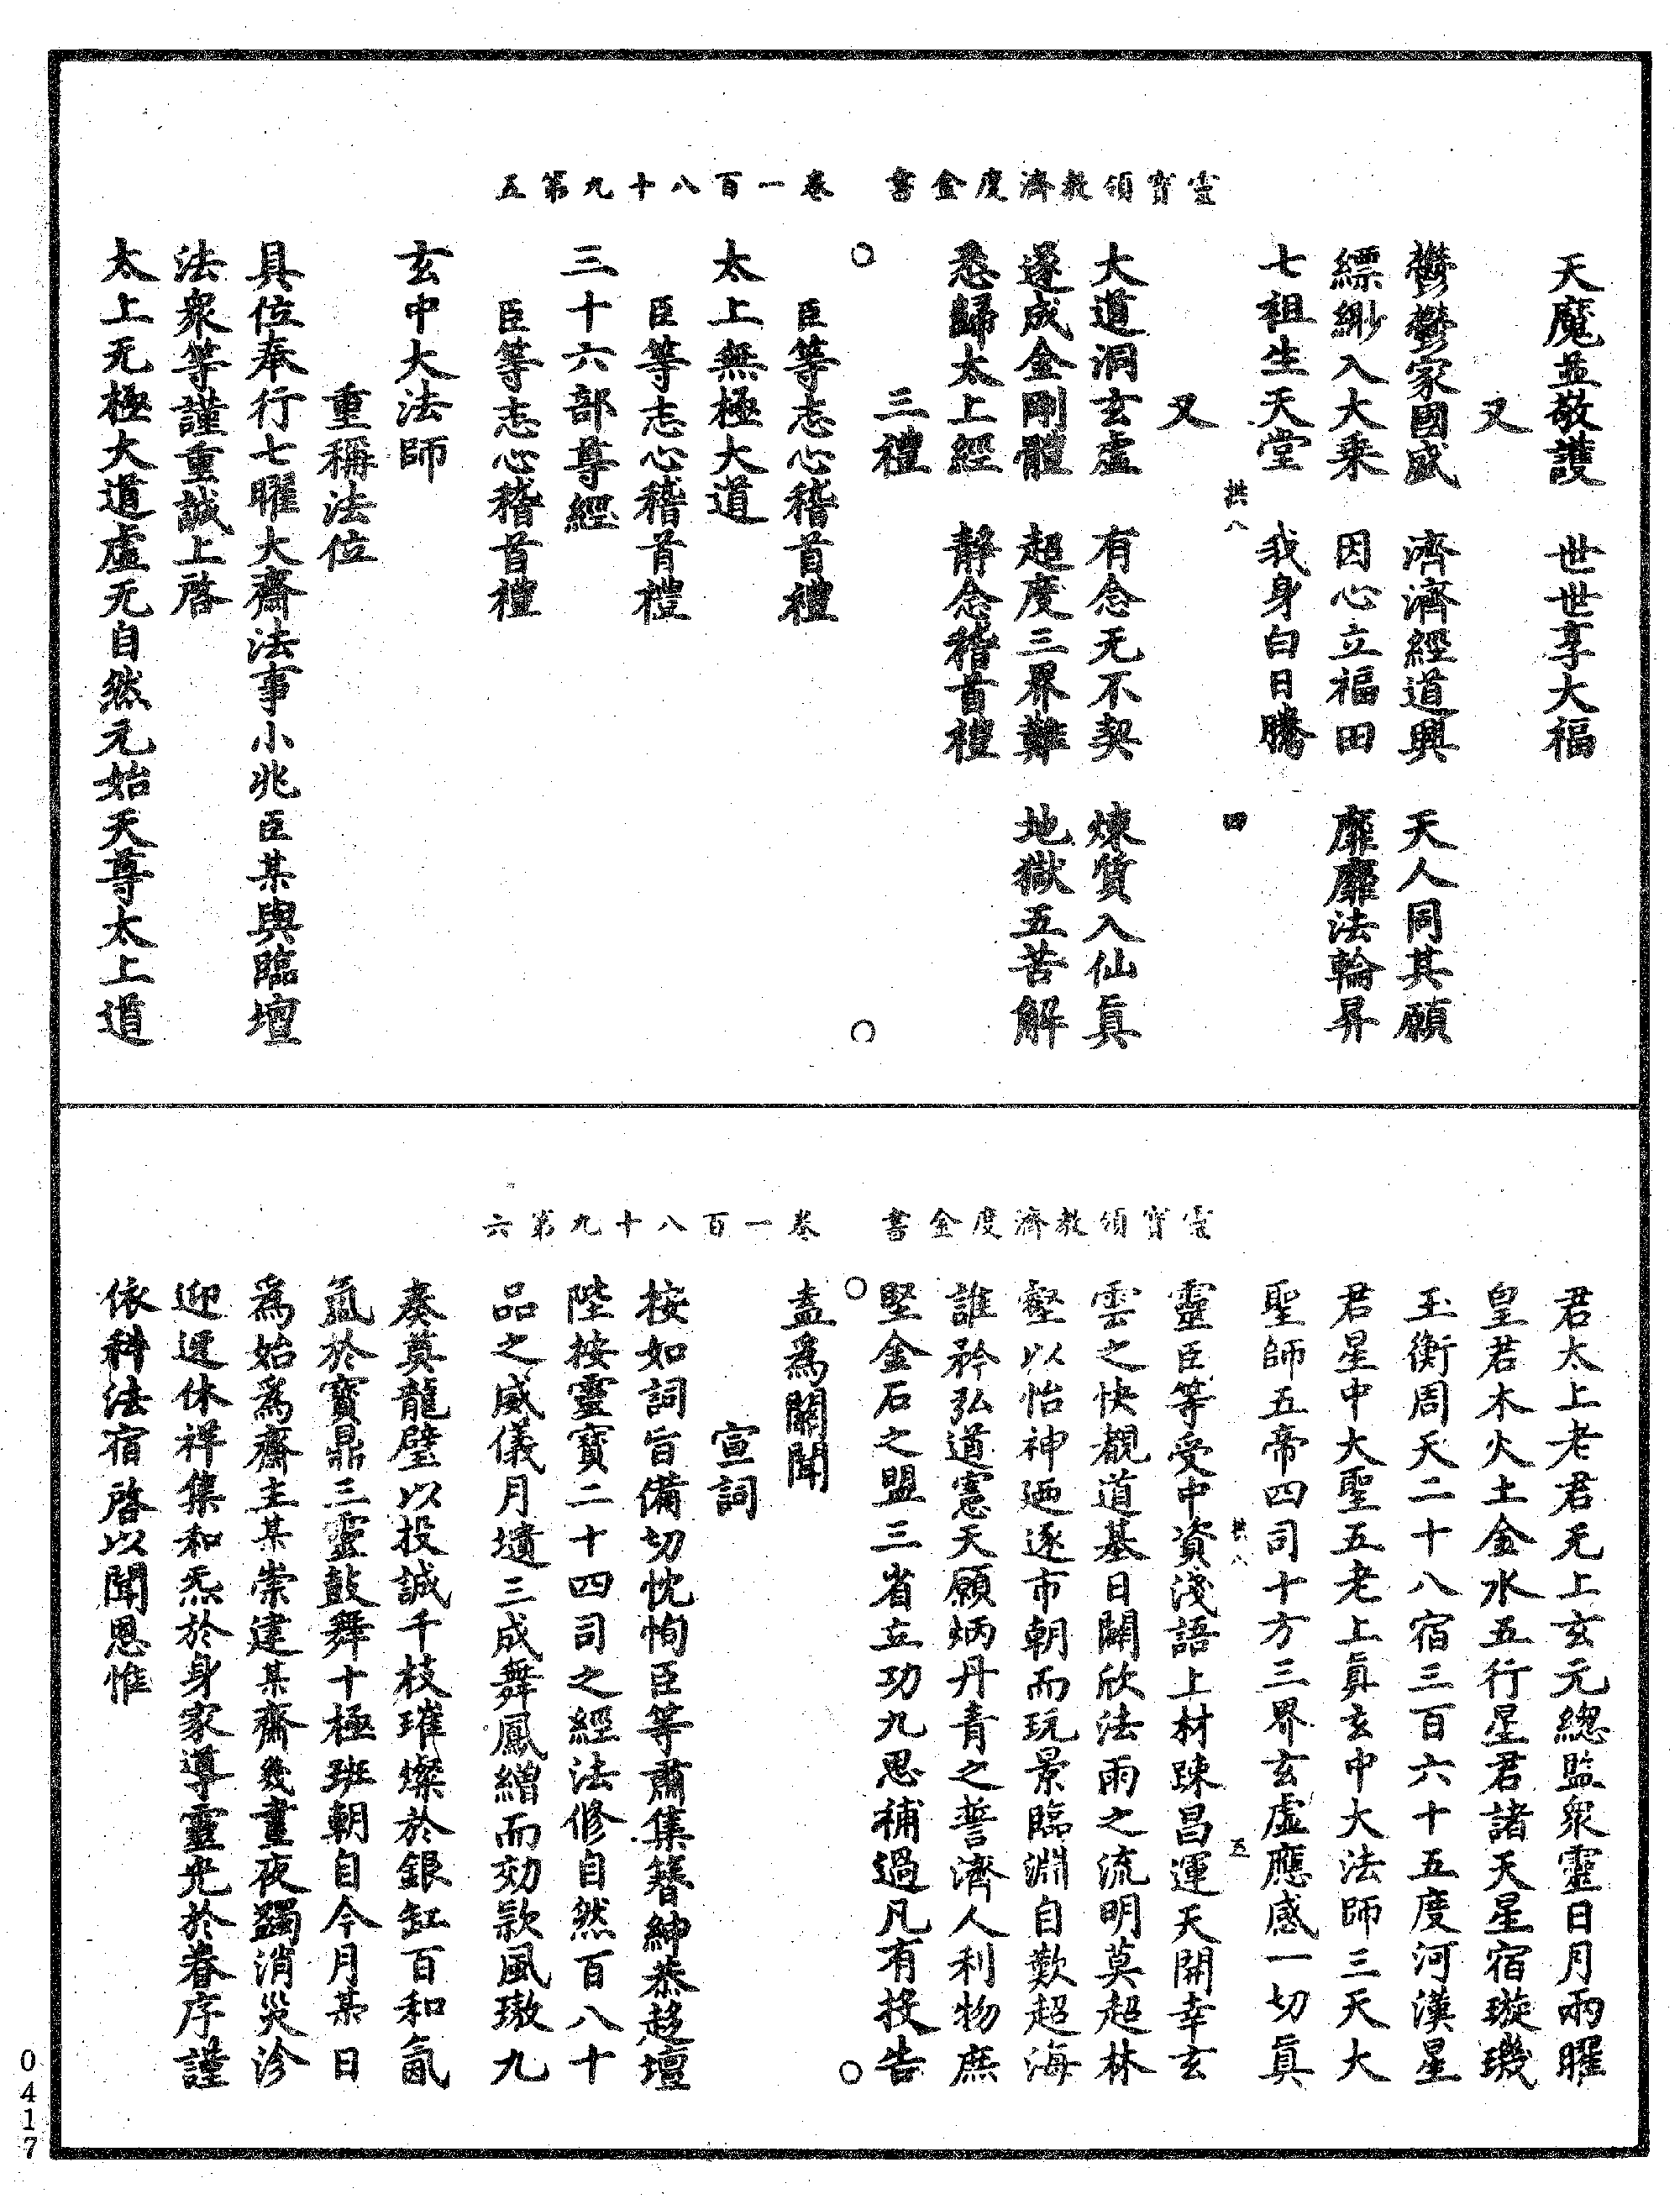 靈寶領教濟度金書　卷一百八十九第五
天魔並敬護　世世享大福
又
鬱鬱家國盛　濟濟經道興　天人同其願
縹緲入大乘　因心立福田　靡靡法輪昇
七祖生天堂　我身白日騰
拱八　四
又
大道洞玄虛　有念无不契　煉質入仙真
遂成金剛體　超度三界難　地獄五苦解
悉歸太上經　靜念稽首禮
三禮
臣等志心稽首禮
太上無極大道
臣等志心稽首禮
三十六部尊經
臣等志心稽首禮
玄中大法師
重稱法位
具位奉行七曜大齋法事小兆臣某與臨壇
法眾等謹重誠上啓
太上无極大道虛无自然元始天尊太上道
靈寶領教濟度金書　卷一百八十九第六
君太上老君无上玄元總監眾靈日月兩曜
皇君木火土金水五行星君諸天星宿璇璣
玉衡周天二十八宿三百六十五度河漢星
君星中大聖五老上真玄中大法師三天大
聖師五帝四司十方三界玄虛應感一切真
拱八　五
靈臣等受中資淺語上材踈昌運天開幸玄
雲之快覩道基日闢欣法雨之流明莫超林
壑以怡神迺逐市朝而玩景臨淵自歎超海
誰矜弘道憲天願炳丹青之誓濟人利物庶
堅金石之盟三省立功九思補過凡有投告
盍爲關聞
宣詞
按如詞旨備切忱恂臣等肅集簪紳恭趍壇
陛按靈寶二十四司之經法修自然百八十
品之威儀月墳三成舞鳳繒而効欵風璈九
奏奠龍璧以投誠千枝璀燦於銀缸百和氤
氳於寶鼎三靈鼓舞十極班朝自今月某日
爲始爲齋主某崇建某齋幾晝夜蠲消災沴
迎迓休祥集和炁於身家導靈光於眷序謹
依科法宿啓以聞恩惟
0417